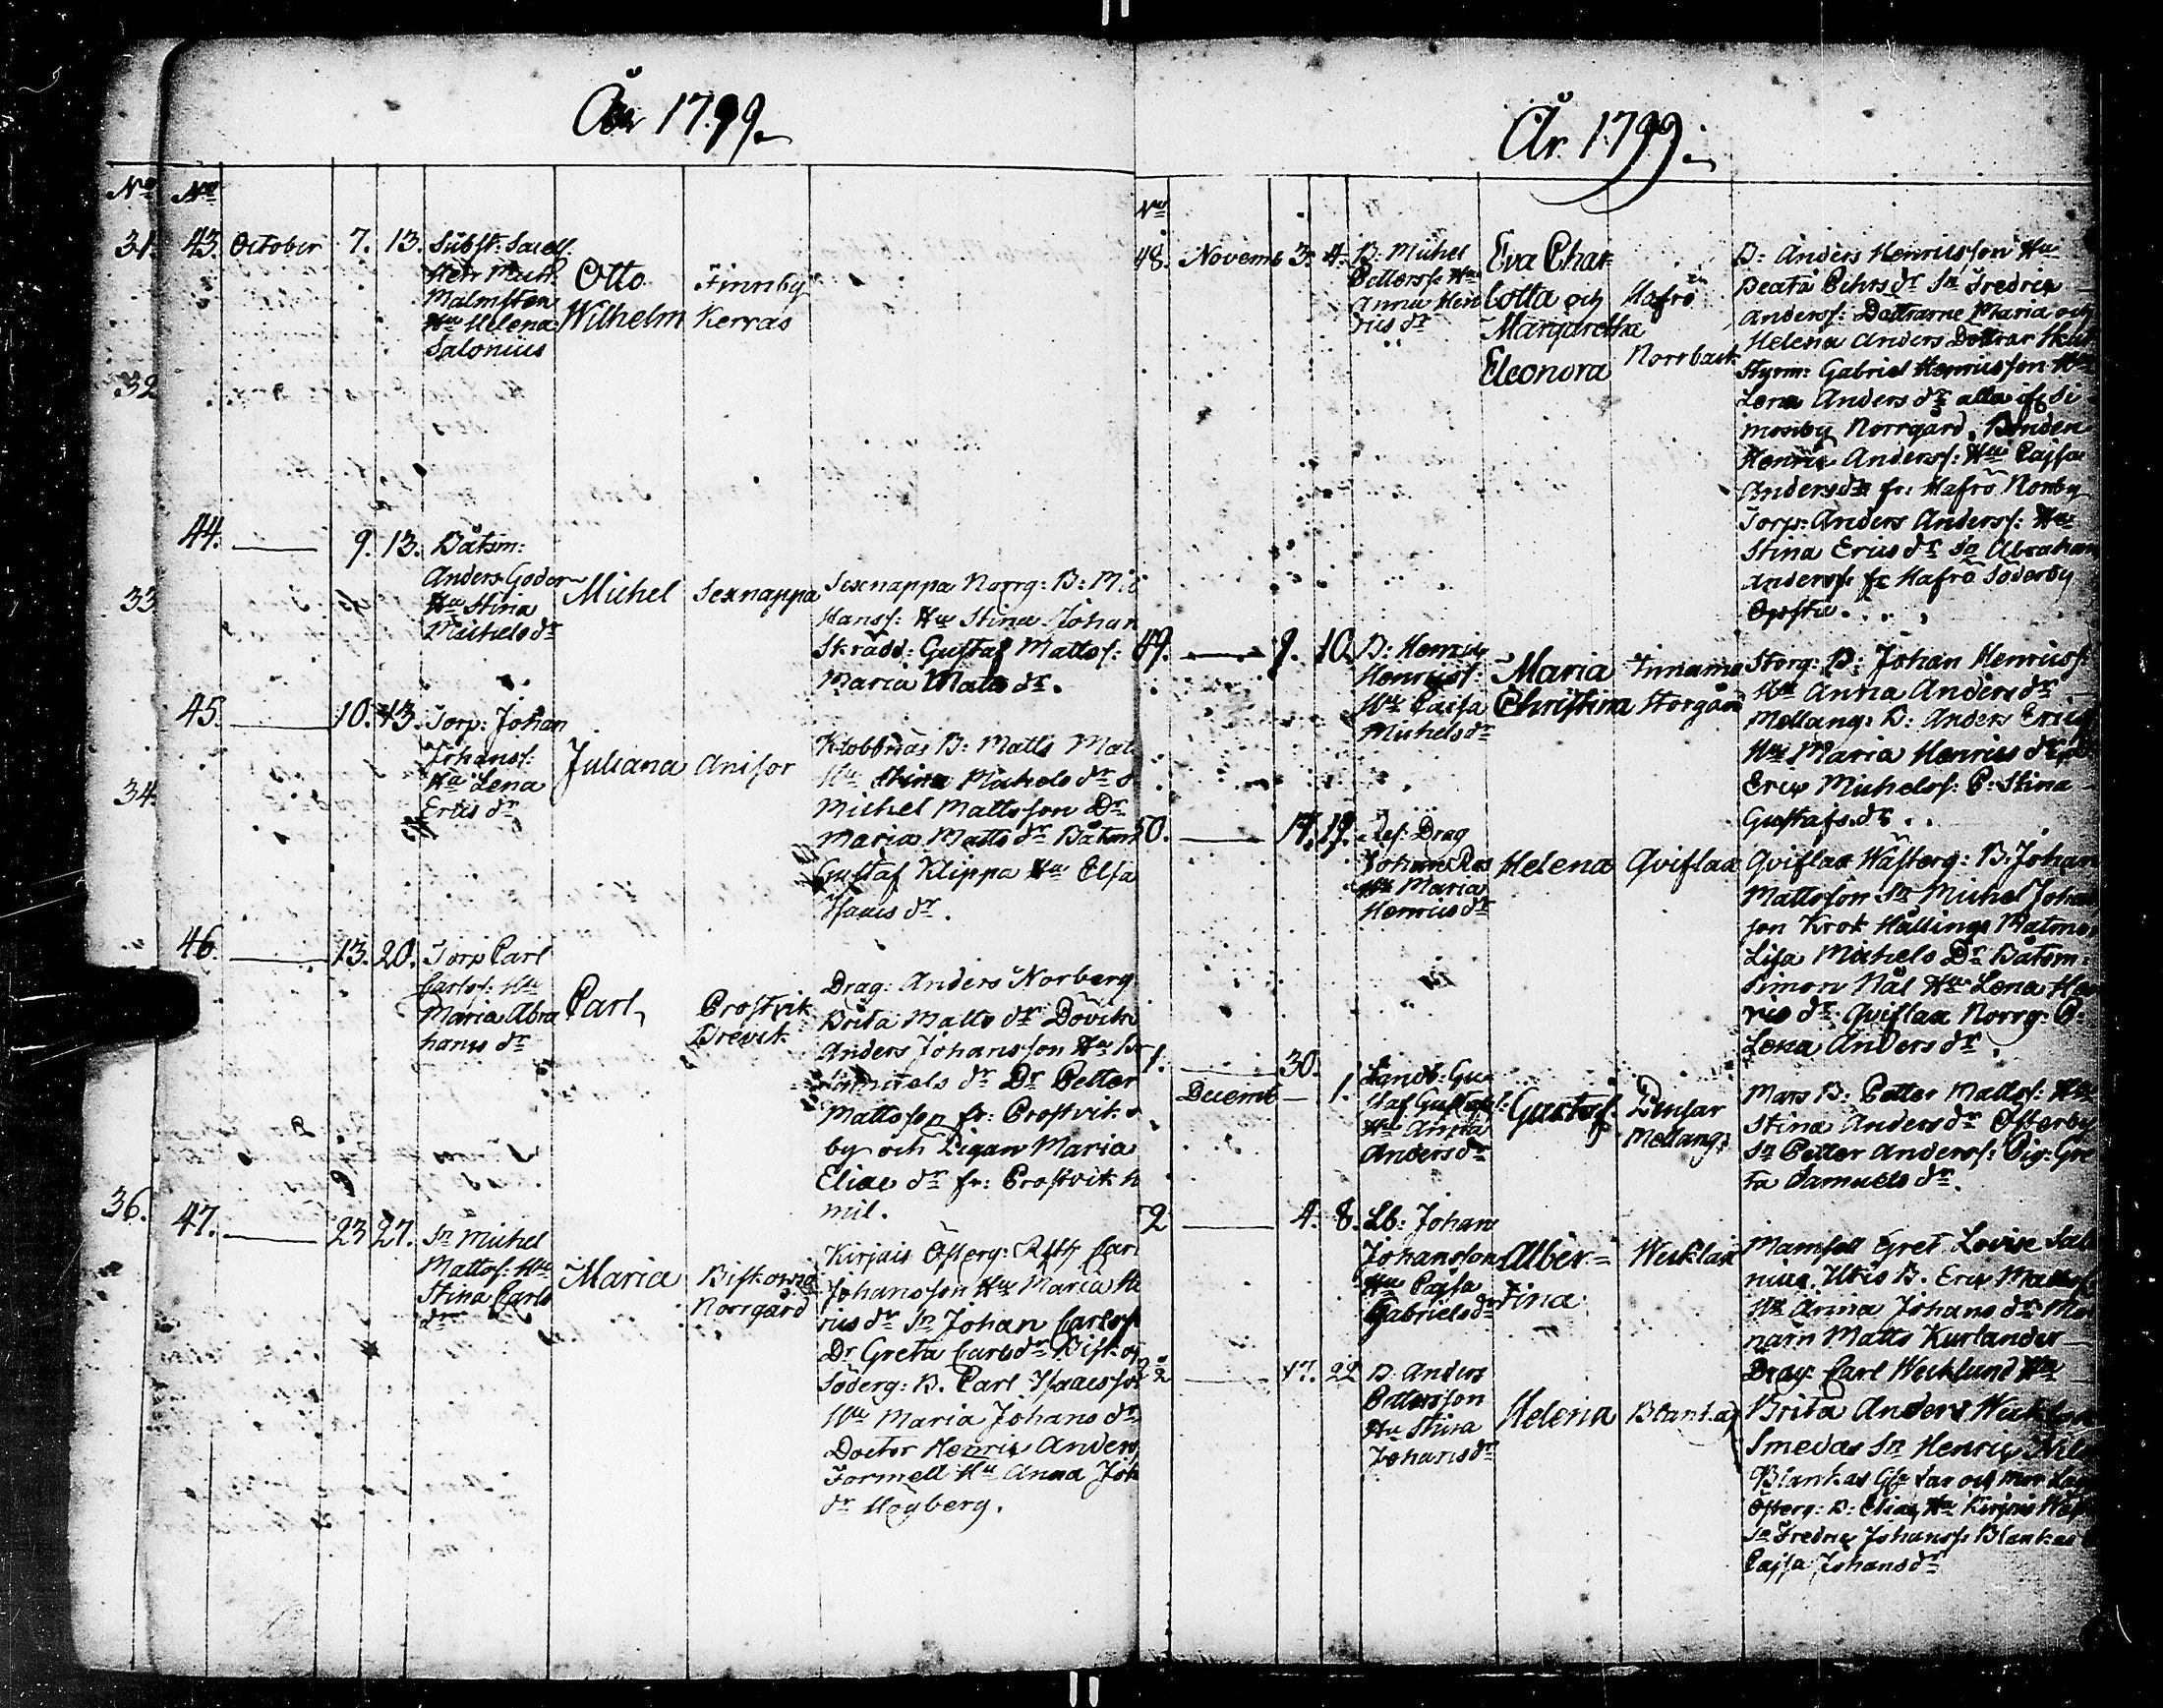 År 1799.
No No
31. 43. October 7. 13. Subst: Sacell
Herr Math
Malmsten
Hu Helena
Salonius
Otto
Wilhelm
Finnby
Kerras
32
44. — 9. 13. Båtsm:
Anders Goder
Hu Stina
Michels dr
Michel
Sexnappa
Sexnappa Norrg: B: Mic
Hanss: Hu Stina Johan
Skrädd: Gustaf Matss:
Maria Mats dr.
33
45. — 10. 13. Torp: Johan
Johanss:
Hu Lena
Erics dr
Juliana
Anisor
Klobbnäs B: Matts Mat
Hu Stina Michels dr
Michel Mattsson Dr
Maria Matts dr Båtsm
Gustaf Klippa Hu Elsa
Isaacs dr.
34
46. — 13. 20. Torp Carl
Carlss: Hu
Maria Abra
hams dr
Carl
Prostvik
Brevik
Drag: Anders Norberg
Brita Matts dr
Anders Johansson Hu
Samuels dr Dr Petter
Mattsson fr: Prostvik
by och Pigan Maria
Elias dr fr: Prostvik
mil.
36.
47. — 23 27. Sn Michel
Mattss: Hu
Stina Carls
dr
Maria
Biskopsö
Norrgård
Kirjais Österg: Carl
Johansson Hu Maria He
rics dr Sn Johan Carlss
Dr Greta Carls dr Bisk
Söderg: B. Carl Isaacsson
Hu Maria Johans dr
Doctor Henric Anders
Formell Hu Anna Joh
dr Högberg.
År 1799.
No
48. Novemb 3. 4. B: Michel
Petterss: Hu
Anna Hen
rics dr
Eva Char
lotta och
Margaretha
Eleonora
Hafrö
Norrback
B: Anders Henricsson Hu
Beata Pehrs dr Sn Fredric
Anderss: Döttrarne Maria och
Helena Anders Döttrar
Styrm: Gabriel Henricsson Hu
Lena Anders dr alla if Si
monby Norrgård. Bonden
Henric Anderss: Hu Cajsa
Anders dr fr: Hafrö Norrby
Torp: Anders Anderss: Hu
Stina Erics dr Sn Abraham
Anderss: fr Hafrö Söderby
49. — 9. 10. B: Henric
Henricss:
Hu Cajsa
Michels dr
Maria
Christina
Finnamo
Storgård
Storg: B: Johan Henricss:
Hu Anna Anders dr
Mellang: B: Anders Erics
Hu Maria Henrics dr
Eric Michelss: P: Stina
Gustafs dr.
50. — 17. 19. Ref: Drag
Johan Ras
Hu Maria
Henrics dr
Helena
Qviflax
Qviflax Wästerg: B: Johan
Mattsson Sn Michel Johan
son Krok Hällings
Lisa Michels Dr Båtsm:
Simon Nål Hu Lena Hen
rics dr Qviflax Norrg: P:
Lena Anders dr.
1. — 30.
Decemb — 1. Landb: Gu
staf Gustafss:
Hu Anna
Anders dr
Gustaf
Pensar
Mellang:
Mars B: Petter Mattss: Hu
Stina Anders dr Österby
Sn Petter Anderss: Pig: Gre
ta Samuels dr.
52 — 4. 8. Lb: Johan
Johansson
Hu Cajsa
Gabriels dr
Alber=
tina
Wicklax
Mamsell Gret Lovise Salo
nius. Utis B. Eric Mattss
Hu Anna Johans dr
Matts Kurlander
Drag: Carl Wecklund Hu
— 17. 22 B. Anders
Pettersson
Hu Stina
Johans dr
Helena
Blankas
Brita Anders
Smedas Sn Henric
Österg: B: Elias Hu Kirjais
Sn Fredric Johanss: Blankas
Cajsa Johans dr